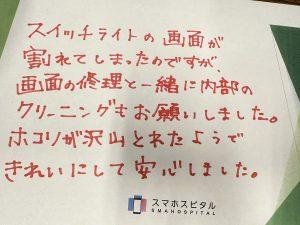 スイッチライトの画面が
割れてしまったのですが、
画面の修理と一緒に内部の
クリーニングもお願いしました。
ホコリが沢山とれたようで
きれいにして安心しました。
スマホスピタル
SMAHOSPITAL